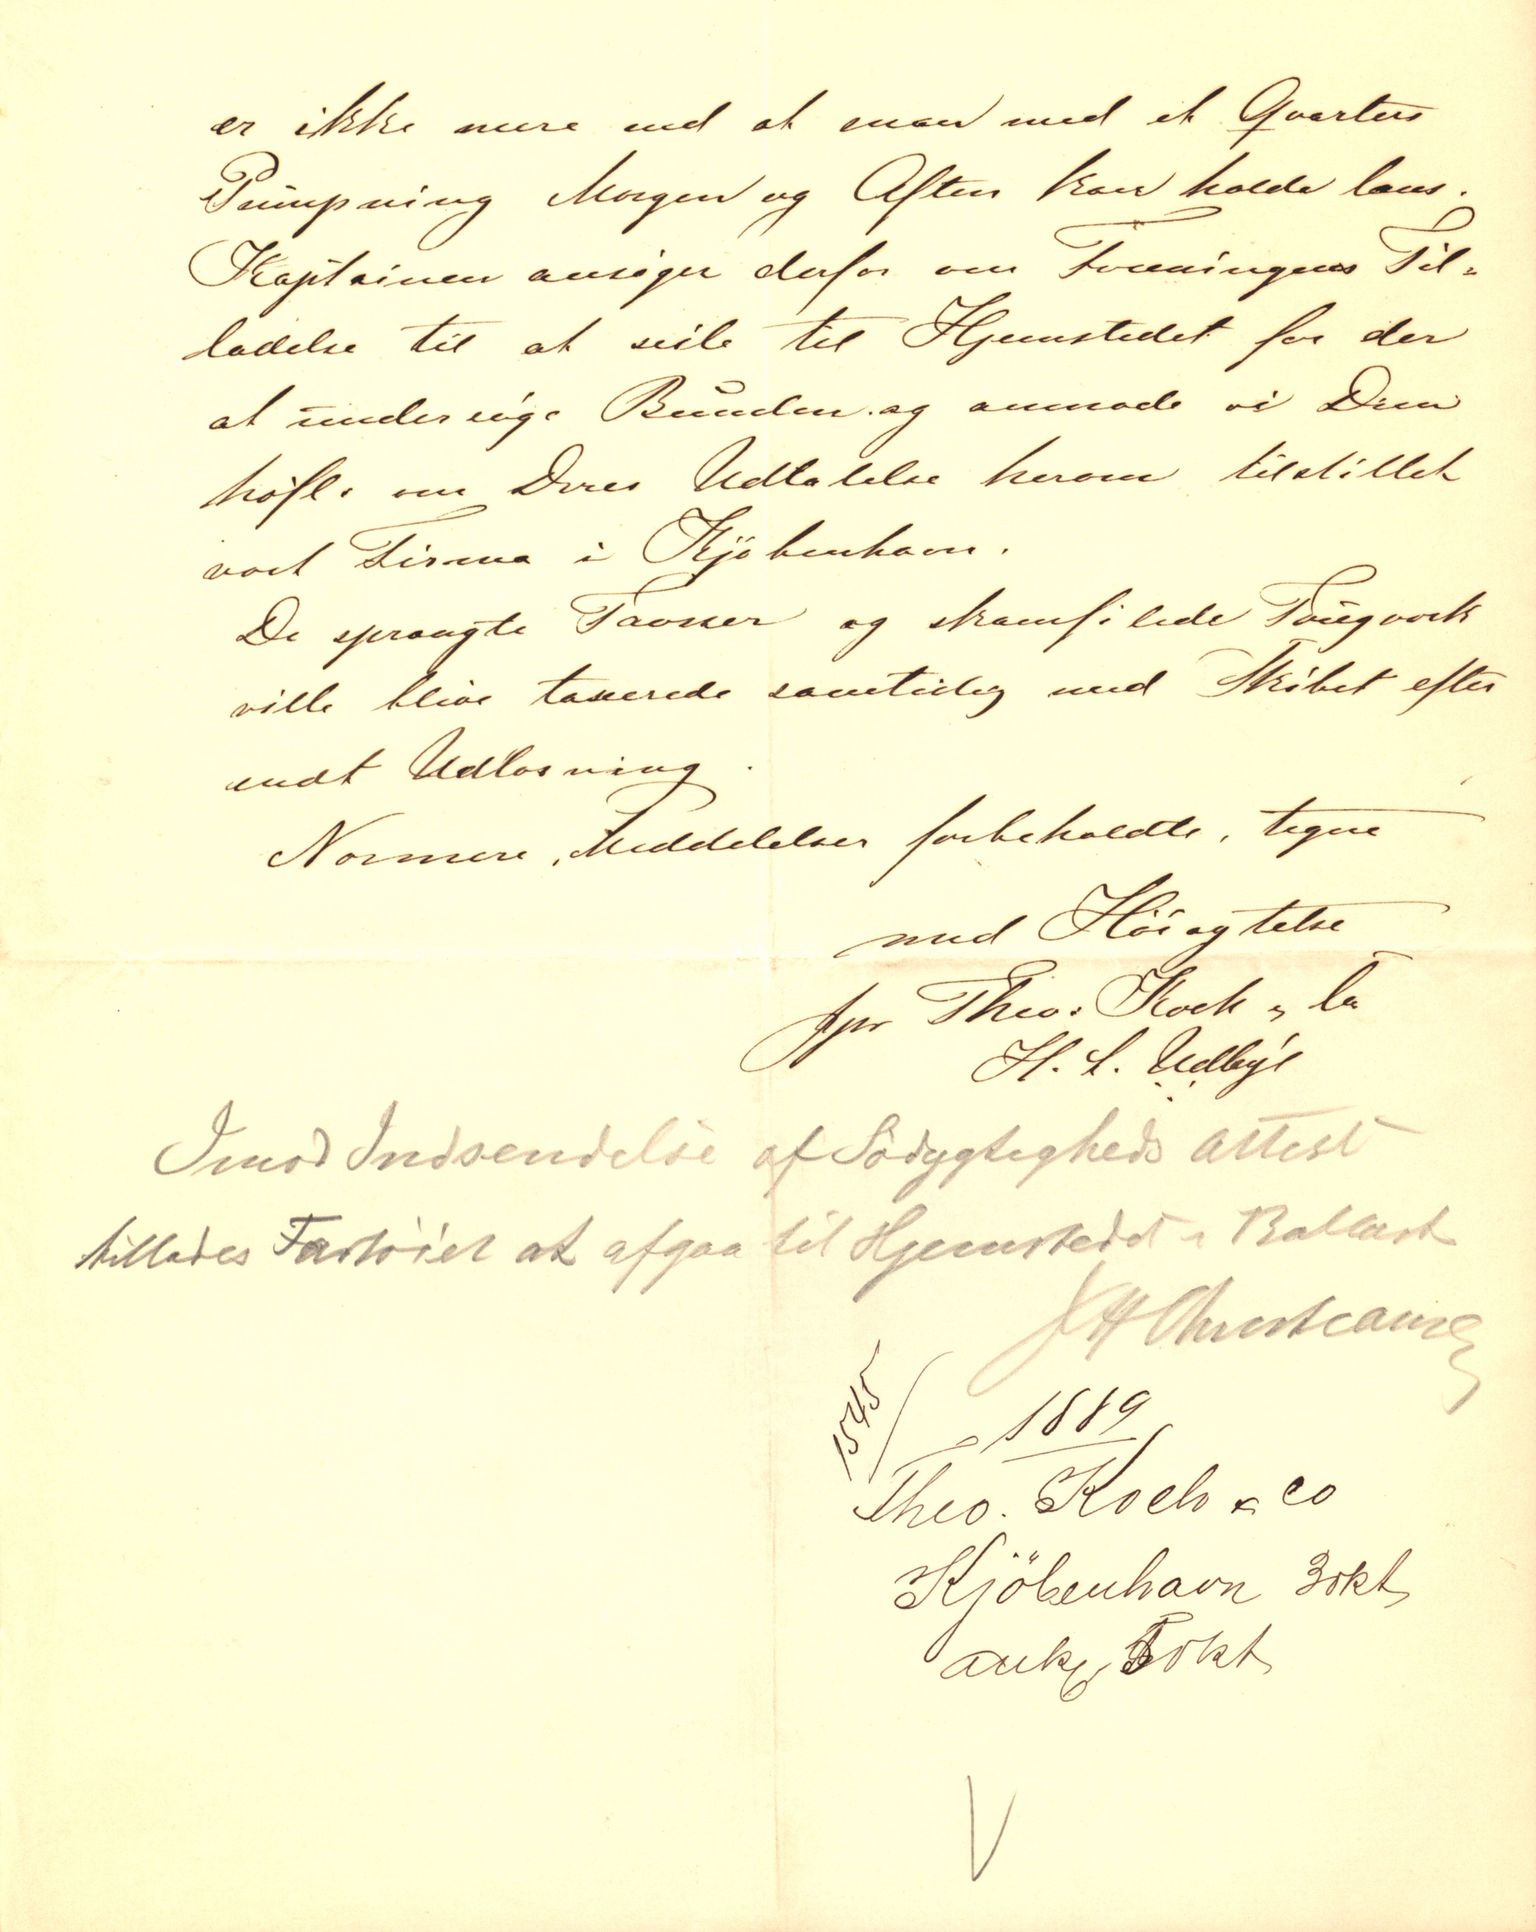 er ikke mere end at man med et Qvarters
Pumpning Morgen og Aften kan holde læns.
Kaptainen ansøger derfor om Foreningens Til=
ladelse til at seile til Hjemstedet for der
at undersøge Bunden og anmode vi Dem
høfl. om Deres Udtalelse herom tilstillet
vort Firma i Kjøbenhavn.
De sprængte Tavser og skamfilede Tougværk
ville blive taxerede samtidig med Skibet efter
endt Udlosning.
Nærmere Meddelelser forbeholdte, tegne
med Høiagtelse
ppr Theo. Koch & Co
H. L.
Imod Indsendelse af Södygtigheds Attest
tillades Fartöiet at afgaa til Hjemstedet i Ballast
J H Christiansen
1545 / 1889
Theo. Koch & Co
Kjöbenhavn 3 okt
ank. 5 okt